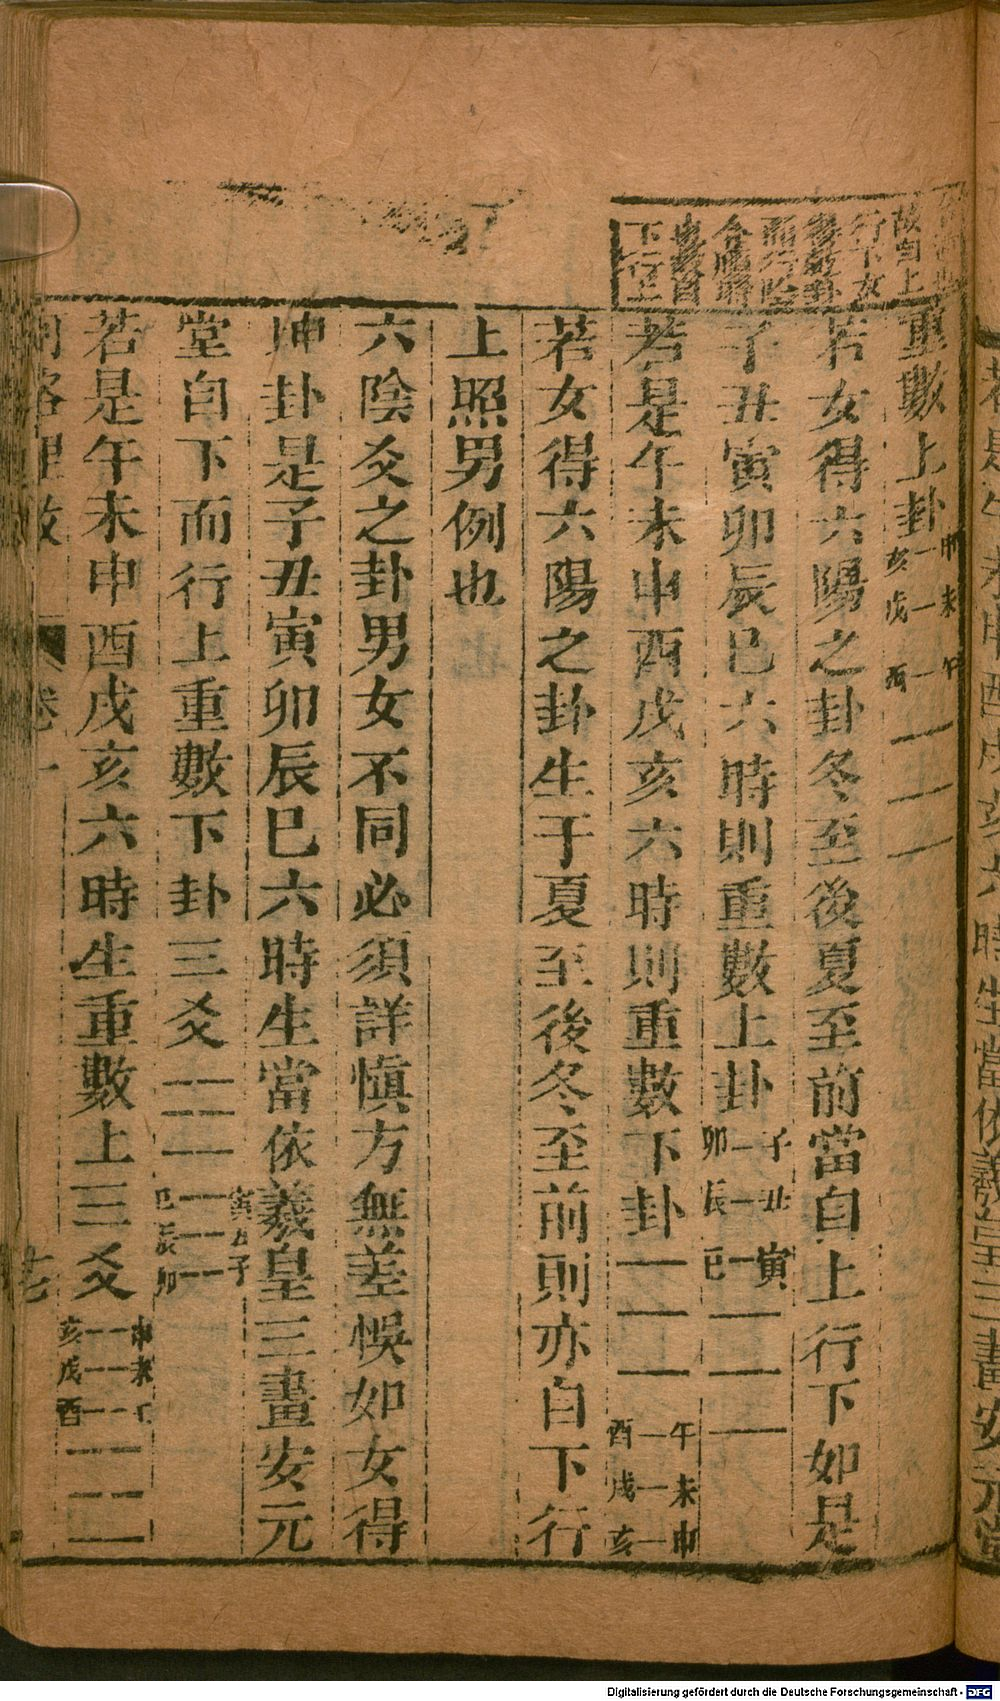 故自上
行下女
下行上
重數上卦 申未午 亥戌酉
若女得六陽之卦冬至後夏至前當自上行下如是
子丑寅卯辰巳六時則重數上卦 子丑寅 卯辰巳
若是午未申酉戌亥六時則重數下卦 午未申 酉戌亥
若女得六陽之卦生于夏至後冬至前則亦自下行
上照男例也
六陰爻之卦男女不同必須詳慎方無差悞如女得
坤卦是子丑寅卯辰巳六時生當依羲皇三畫安元
堂自下而行上重數下卦三爻 寅丑子 巳辰卯
若是午未申酉戌亥六時生重數上三爻 申未 亥戌酉
Digitalisierung gefördert durch die Deutsche Forschungsgemeinschaft - DFG